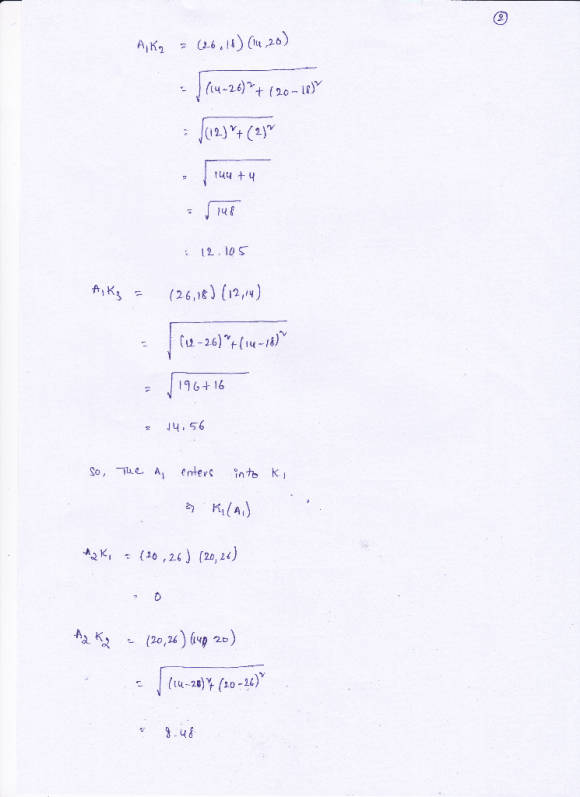 ②
A₁K₂ = (26,18) (14,20)
= √((14-26)² + (20-18)²)
= √((12)² + (2)²)
= √(144 + 4)
= √148
= 12.105
A₁K₃ = (26,18) (12,14)
= √((12-26)² + (14-18)²)
= √(196+16)
= 14.56
So, The A₁ enters into K₁
⇒ K₁(A₁)
A₂K₁ = (20,26) (20,26)
= 0
A₂K₂ = (20,26) (14, 20)
= √((14-20)² + (20-26)²)
= 8.48